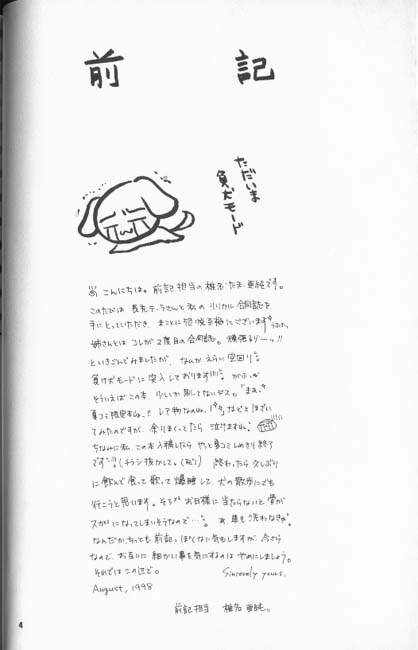 前記
ただいま
負犬モード
こんにちは。前記担当の椎名・たま・亜純です。
このたびは 長先テーラさんと私のリリカル合同誌を
手にとっていただき、まことに恐悦至極にございます
姉さんとは コレが2度目の合同誌。頑張るゾーッ!!
といきごんでみましたが、なんかえらい空回り
負け犬モードに突入しております
そういえばこの本、少ししか刷してないデス。「まぁ、
夏コミ限定本よね、レア物なのね、」などとほざい
てみたのですが、余りまくってたら泣けますね。
ちなみに私、この本入稿したら やっと夏コミしめきり終了
です (チラシ抜かして。) 終わったら久しぶり
に飲んで食って歌って爆睡して、犬の散歩にでも
行こうと思います。そろそろお日様に当たらないと、骨が
スカになってしまいそうなので…。あ、車も洗わなきゃ。
なんだか、ちっとも前記っぽくない気もしますが、今さら
なので、お互いに細かい事を気にするのは やめにしましょう。
それではこの辺で。 Sincerely yours,
August, 1998
前記担当 椎名亜純。
4